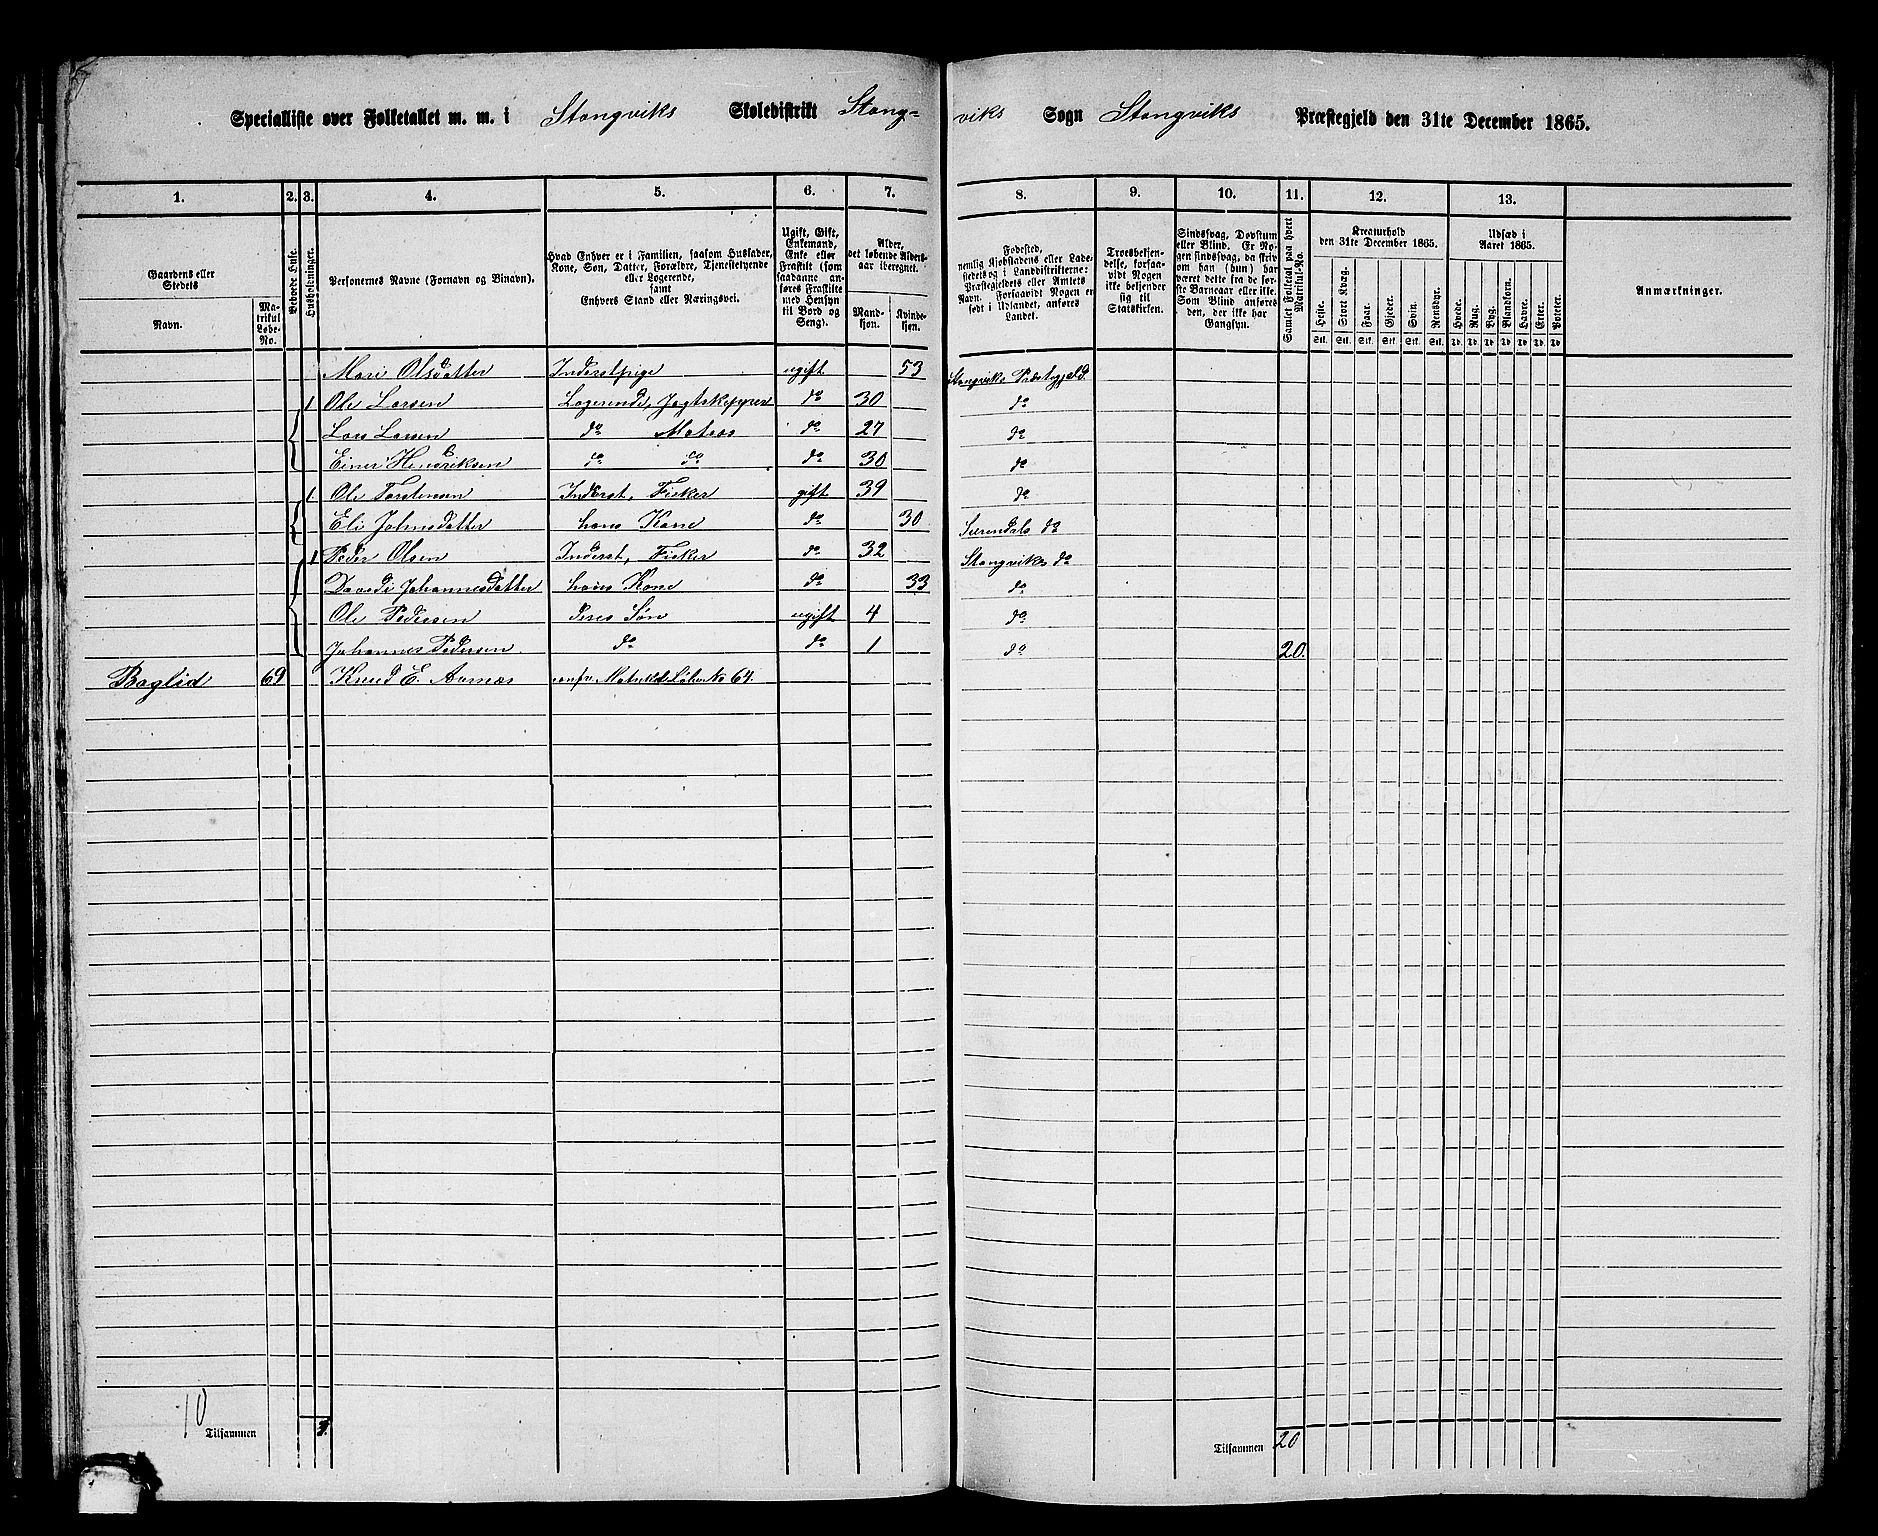 Specialliste over Folketallet m. m. i Stangviks Skoledistrikt Stang-viks Sogn Stangviks Præstegjeld den 31te December 1865.
1. 2. 3. 4. 5. 6. 7. 8. 9. 10. 11. 12. 13.
Gaardens eller Stedets
Navn.
Matrikul Løbe-No.
Beboede Huse.
Husholdninger.
Personernes Navne (Fornavn og Tilnavn).
Hvad Enhver er i Familien, saasom Husfader, Kone, Søn, Datter, Forældre, Tjenestetyende eller Logerende, samt Enhvers Stand eller Næringsvei.
Ugift, Gift, Enkemand, Enke eller Fraskilt (som saadanne anføres Fraskilte med Hensyn til Bord og Seng).
Alder, det løbende Aldersaar iberegnet.
Mandkjøn.
Kvindekjøn.
Fødested, nemlig Kjøbstadens eller Ladestedets og i Landdistrikterne: Præstegjeldets eller Amtets Navn. Forsaavidt Nogen er født i Udlandet, anføres Landet.
Troesbekjendelse, forsaavidt Nogen ikke bekjender sig til Statskirken.
Sindssvag, Døvstum eller Blind. Er Nogen sindssvag, da skriv om han (hun) har været dette fra de første Barneaar eller ikke. Som Blind anføres den, der ikke har Gangsyn.
Samlet Folketal paa hvert Matrikul-No.
Kreaturhold den 31te December 1865.
Heste. Stort Kvæg. Faar. Gjeder. Svin. Rensdyr.
Stk. Stk. Stk. Stk. Stk. Stk.
Udsæd i Aaret 1865.
Hvede. Rug. Byg. Blandkorn. Havre. Erter. Poteter.
Td. Td. Td. Td. Td. Td. Td.
Anmærkninger.
Mari Olsdatter Inderstpige ugift 53 Stangviks Præstegjeld.
1 Ole Larsen Logerende, Jagtskipper do 30 do
Lars Larsen do Matros do 27 do
Einer Hendriksen do do do 30 do
1 Ole Torstensen Inderst, Fisker gift 39 do
Eli Johnsdatter hans Kone do 30 Surendals do
1 Peder Olsen Inderst, Fisker do 32 Stangviks do
Dordi Johannesdatter hans Kone do 33 do
Ole Pedersen deres Søn ugift 4 do
Johannes Pedersen do do 1 do 20.
Baglid 69 Knud E. Aarnæs confr. Matrikul Løbe No 64.
10
Tilsammen
Tilsammen 20